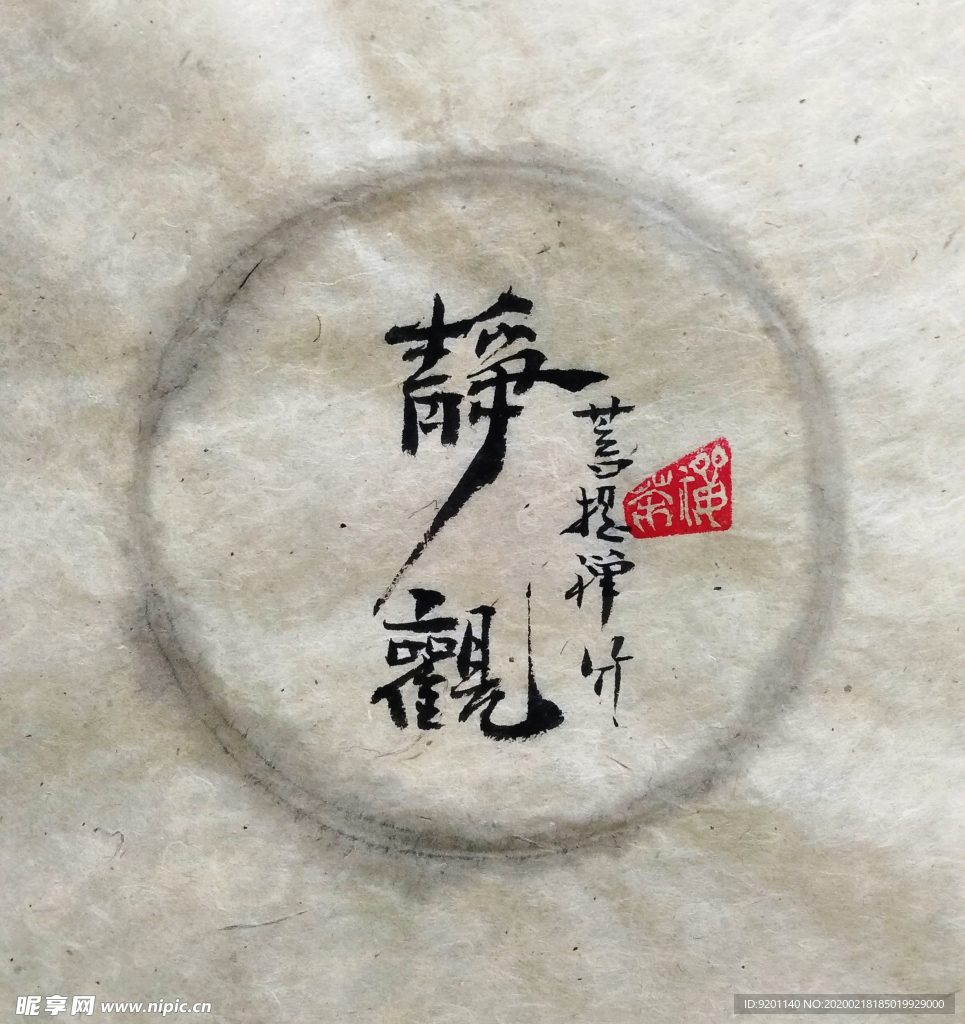 靜觀
菩提禅竹
禅茶
昵享网 www.nipic.cn
ID:9201140 NO:20200218185019929000